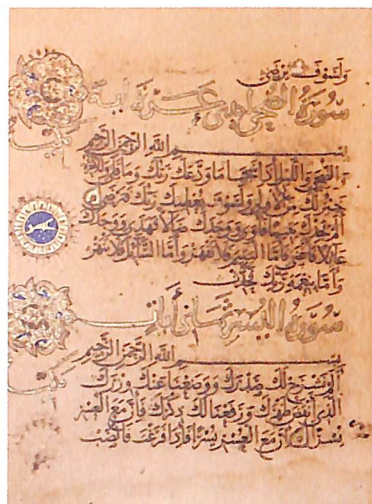 ولسوف يرضى
سورة الضحى احدى عشرة اية
مكية
بسم الله الرحمن الرحيم
والضحى والليل اذا سجى ما ودعك ربك وما قلى وللاخرة
خير لك من الاولى ولسوف يعطيك ربك فترضى
الم يجدك يتيما فاوى ووجدك ضالا فهدى ووجدك
عائلا فاغنى فاما اليتيم فلا تقهر واما السائل فلا تنهر
واما بنعمة ربك فحدث
سورة اليسر ثماني ايات
مكية
بسم الله الرحمن الرحيم
الم نشرح لك صدرك ووضعنا عنك وزرك
الذي انقض ظهرك ورفعنا لك ذكرك فان مع العسر
يسرا ان مع العسر يسرا فاذا فرغت فانصب